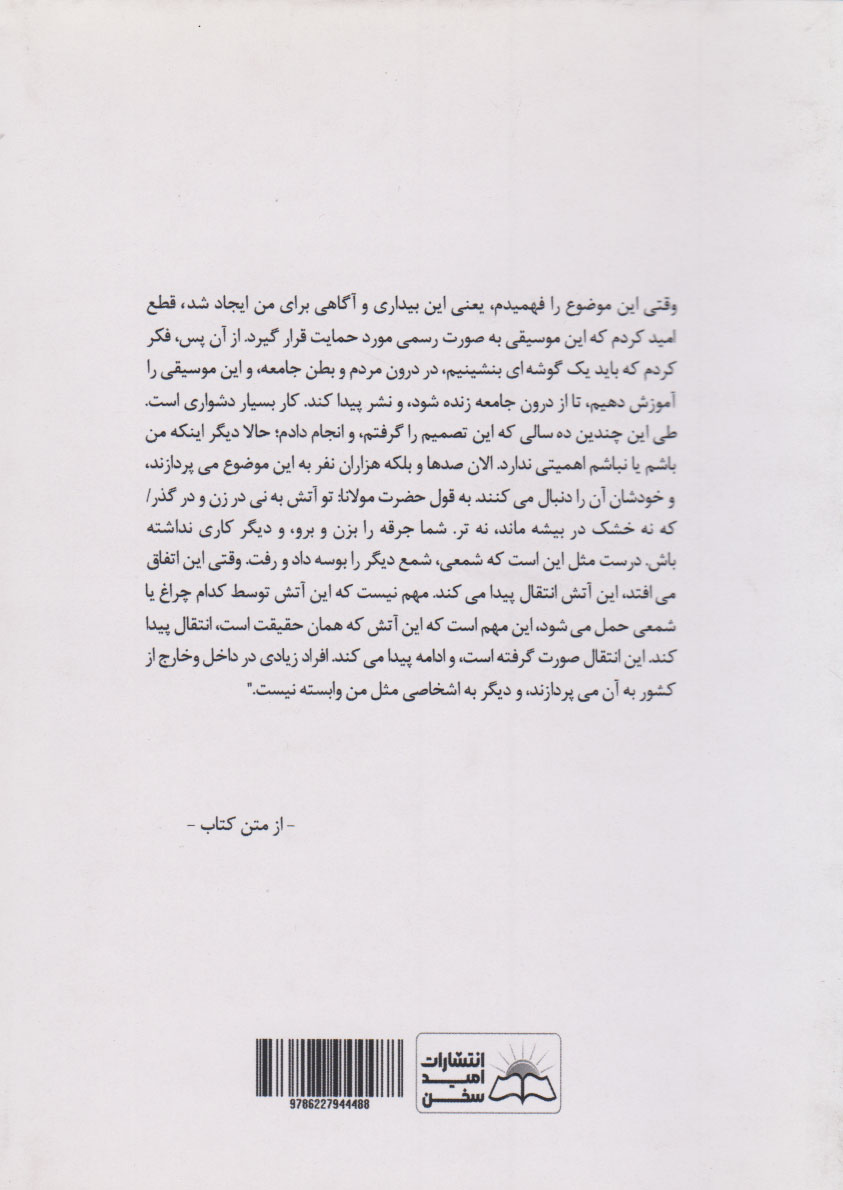 وقتی این موضوع را فهمیدم، یعنی این بیداری و آگاهی برای من ایجاد شد، قطع
امید کردم که این موسیقی به صورت رسمی مورد حمایت قرار گیرد. از آن پس، فکر
کردم که باید یک گوشه ای بنشینیم، در درون مردم و بطن جامعه، و این موسیقی را
آموزش دهیم، تا از درون جامعه زنده شود، و نشر پیدا کند. کار بسیار دشواری است.
طی این چندین ده سالی که این تصمیم را گرفتم، و انجام دادم؛ حالا دیگر اینکه من
باشم یا نباشم اهمیتی ندارد. الان صدها و بلکه هزاران نفر به این موضوع می پردازند،
و خودشان آن را دنبال می کنند. به قول حضرت مولانا: تو آتش به نی در زن و در گذر/
که نه خشک در بیشه ماند، نه تر. شما جرقه را بزن و برو، و دیگر کاری نداشته
باش. درست مثل این است که شمعی، شمع دیگر را بوسه داد و رفت. وقتی این اتفاق
می افتد، این آتش انتقال پیدا می کند. مهم نیست که این آتش توسط کدام چراغ یا
شمعی حمل می شود، این مهم است که این آتش که همان حقیقت است، انتقال پیدا
کند. این انتقال صورت گرفته است، و ادامه پیدا می کند. افراد زیادی در داخل وخارج از
کشور به آن می پردازند، و دیگر به اشخاصی مثل من وابسته نیست."
- از متن کتاب -
انتشارات
امید
سخن
9786227944488